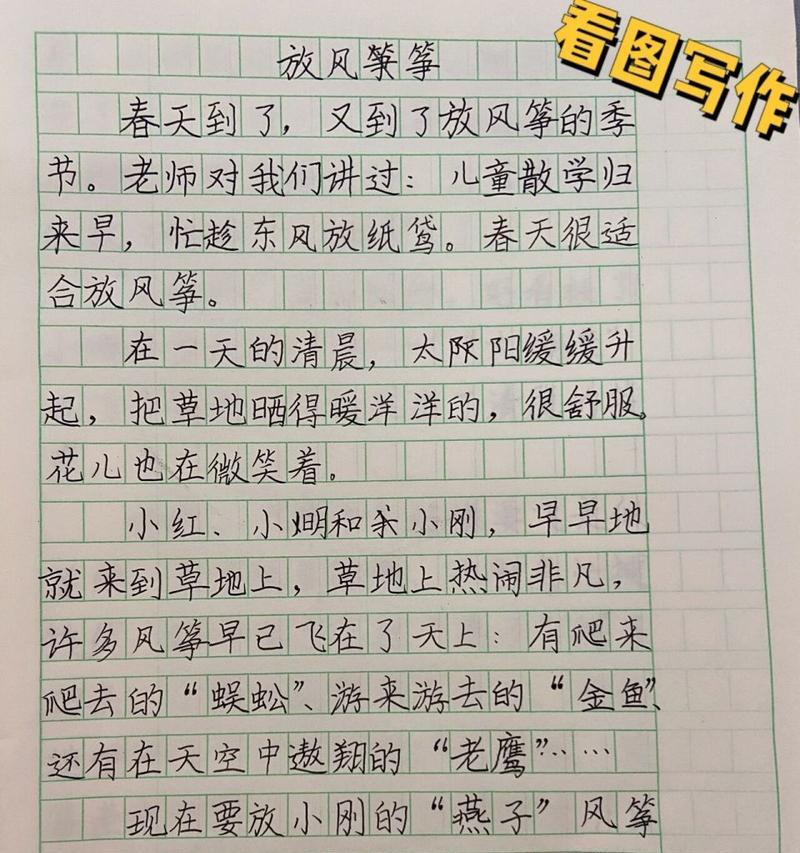 看图写作
放风筝筝
春天到了，又到了放风筝的季
节。老师对我们讲过：儿童散学归
来早，忙趁东风放纸鸢。春天很适
合放风筝。
在一天的清晨，太阳阳缓缓升
起，把草地晒得暖洋洋的，很舒服。
花儿也在微笑着。
小红、小明和小刚，早早地
就来到草地上，草地上热闹非凡，
许多风筝早已飞在了天上：有爬来
爬去的“蜈蚣”、游来游去的“金鱼”、
还有在天空中遨翔的“老鹰”……
现在要放小刚的“燕子”风筝